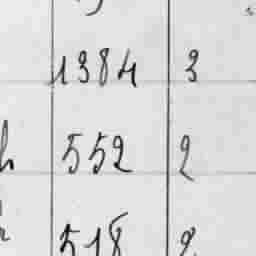 1384 3
552 2
518 2